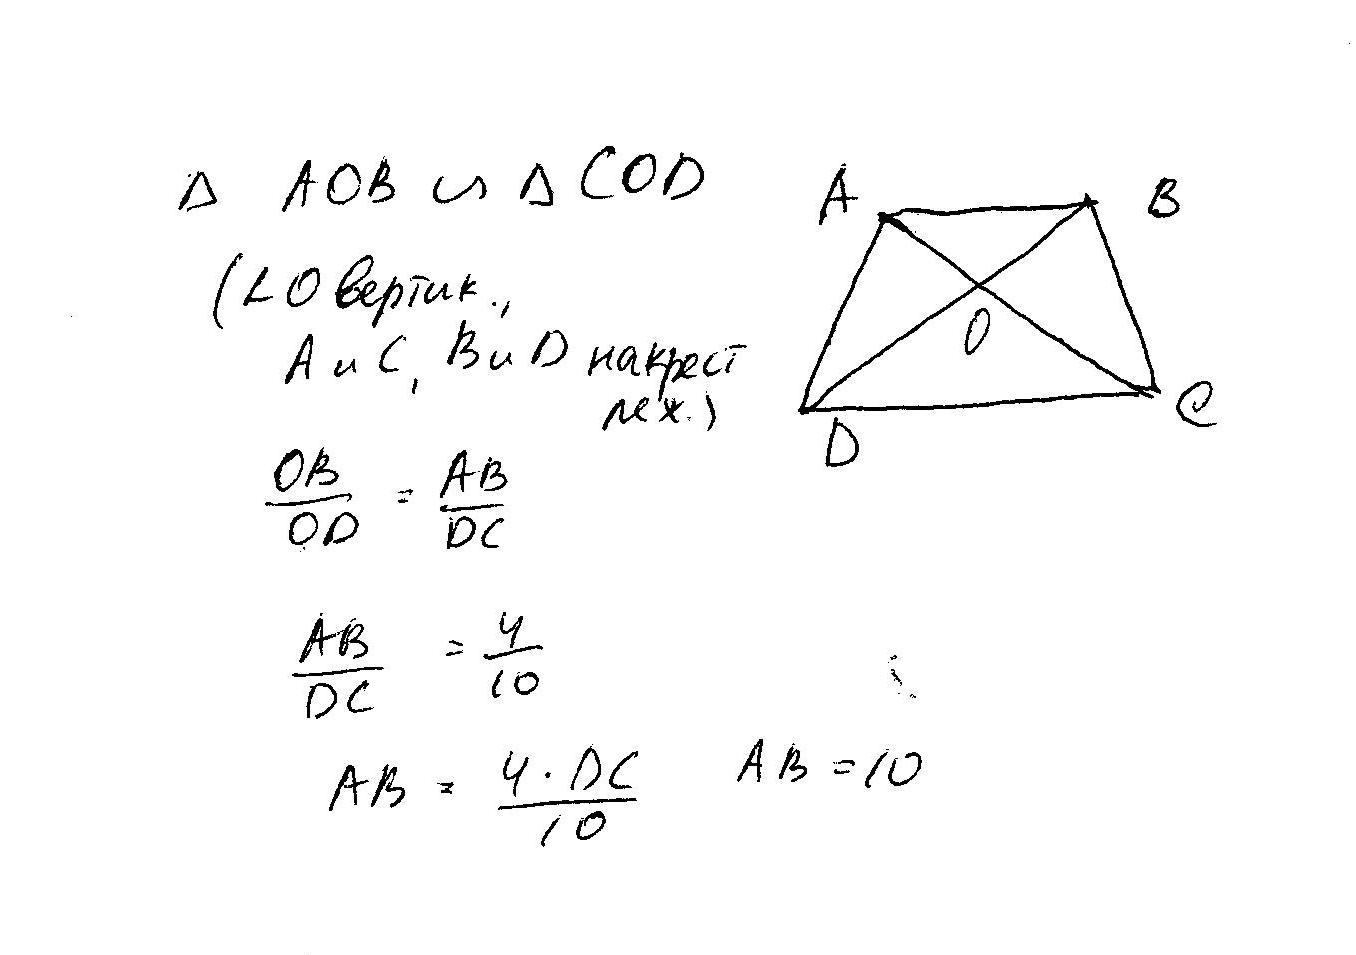 Δ AOB ∽ Δ COD
(∠O вертик.,
A и C, B и D накрест
леж.)
OB/OD = AB/DC
AB/DC = 4/10
AB = 4·DC/10 AB = 10
A B
O
D C